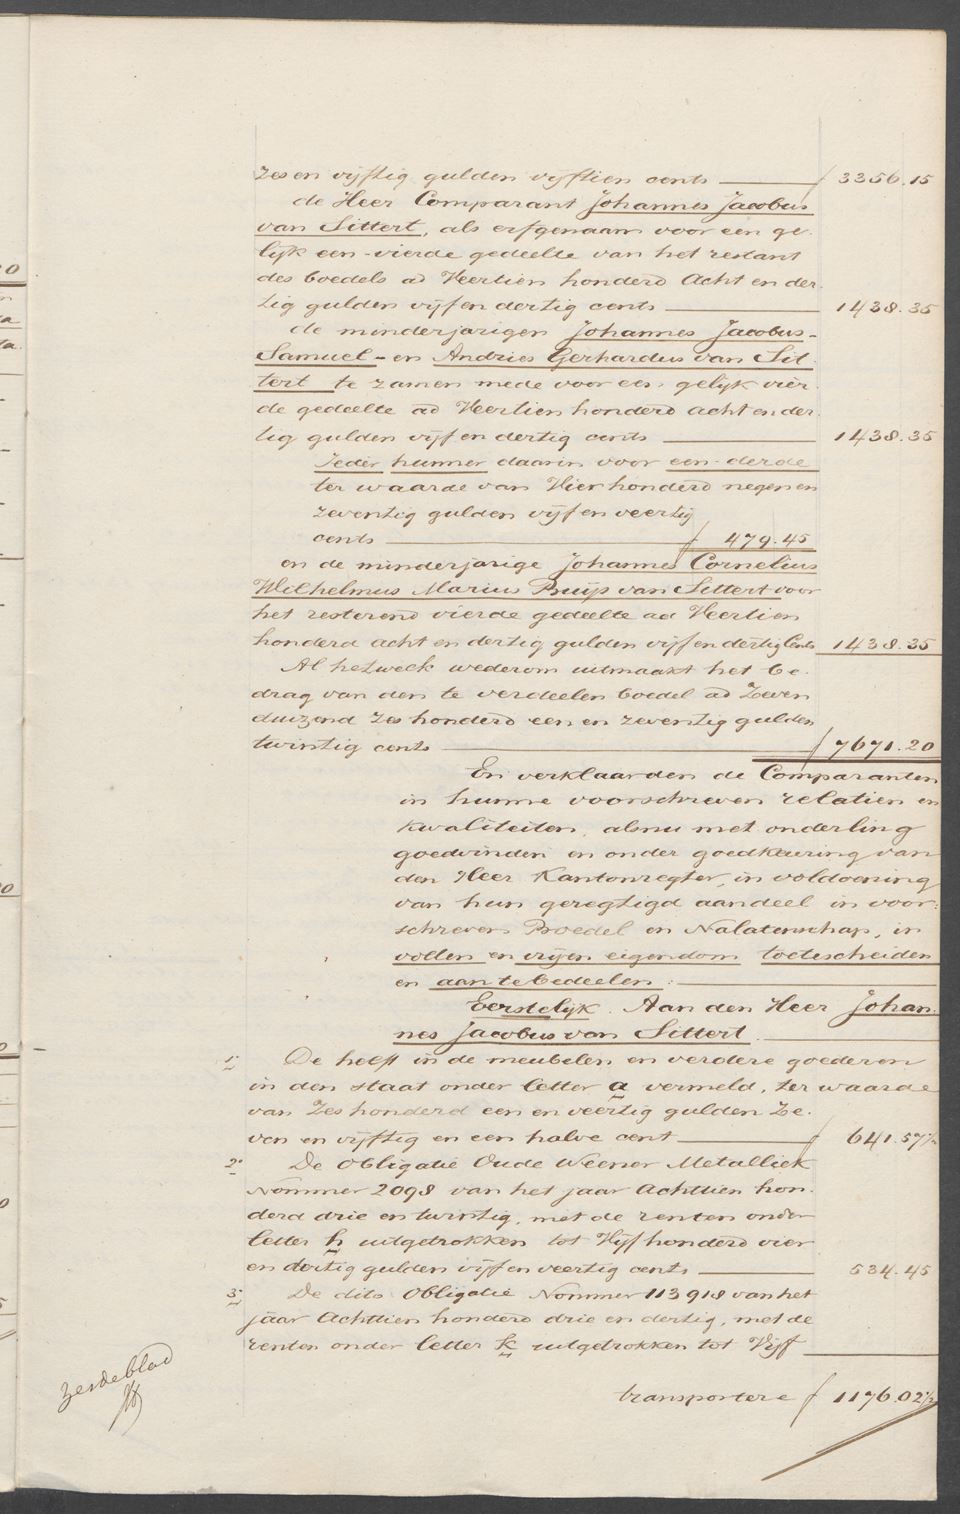 zes en vijftig gulden vijftien cents ƒ 3356.15
de Heer Comparant Johannes Jacobus
van Sittert, als erfgenaam voor een ge-
lijk een-vierde gedeelte van het restant
des boedels ad Veertien honderd Acht en der-
tig gulden vijf en dertig cents 1438.35
de minderjarigen Johannes Jacobus-
Samuel- en Andries Gerhardus van Sit-
tert te zamen mede voor een gelijk vier-
de gedeelte ad Veertien honderd acht en der-
tig gulden vijf en dertig cents 1438.35
Ieder hunner daarin voor een-derde
ter waarde van Vier honderd negen en
zeventig gulden vijf en veertig
cents ƒ 479.45
en de minderjarige Johannes Cornelius
Wilhelmus Marius Pruijs van Sittert voor
het resterend vierde gedeelte ad Veertien
honderd acht en dertig gulden vijf en dertig Cents 1438.35
Al hetwelk wederom uitmaakt het be-
drag van den te verdeelen boedel ad Zeven
duizend zes honderd een en zeventig gulden
twintig cents ƒ 7671.20
En verklaarden de Comparanten
in hunne voorschreven relatien en
kwaliteiten, alsnu met onderling
goedvinden en onder goedkeuring van
den Heer Kantonregter, in voldoening
van hun geregtigd aandeel in voor-
schreven Boedel en Nalatenschap, in
vollen en vrijen eigendom toetescheiden
en aantebedeelen:
Eerstelijk. Aan den Heer Johan-
nes Jacobus van Sittert.
1° De helft in de meubelen en verdere goederen
in den staat onder letter a vermeld, ter waarde
van Zes honderd een en veertig gulden Ze-
ven en vijftig en een halve cent ƒ 641.57½
2° De Obligatie Oude Weener Metalliek
Nommer 2098 van het jaar Achttien hon-
derd drie en twintig, met de renten onder
letter h uitgetrokken tot Vijf honderd vier
en dertig gulden vijf en veertig cents 534.45
3° De dito Obligatie Nommer 113918 van het
jaar Achttien honderd drie en dertig, met de
renten onder letter k uitgetrokken tot Vijf
transportere ƒ 1176.02½
zesde blad